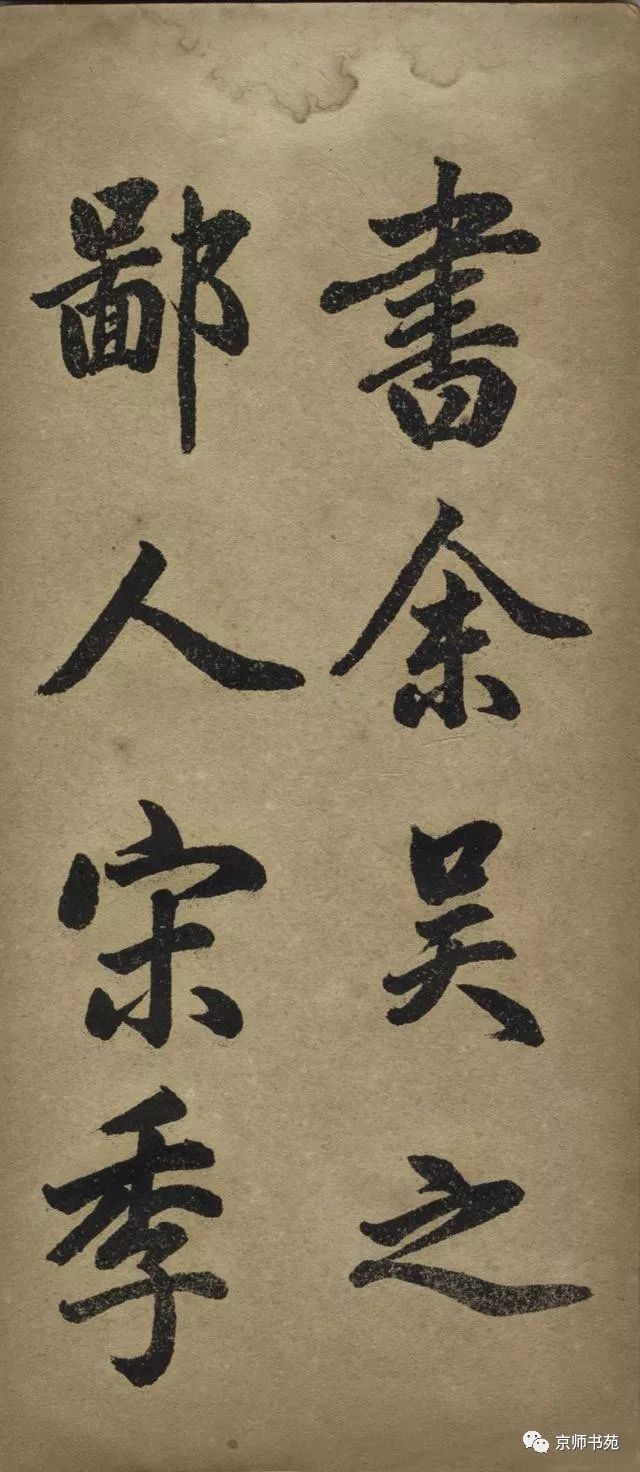 書余吴之
鄙人宋季
京师书苑